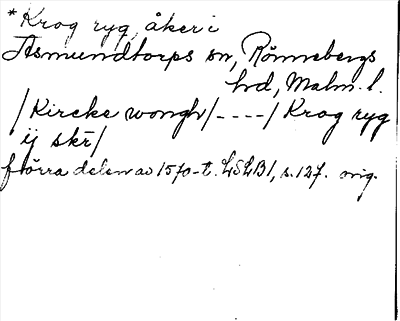 *Krog ryg, åker i
Asmundtorps sn, Rönnebergs
hd, Malm. l.
/Kircke wongh/----/Krog ryg
ij skr̄/
förra delen av 1570-t. LSLB1, s. 127. orig.